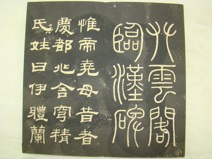 竹雲閣
臨漢碑
惟帝堯母昔者
慶都兆舍穹精
氏姓曰伊體蘭